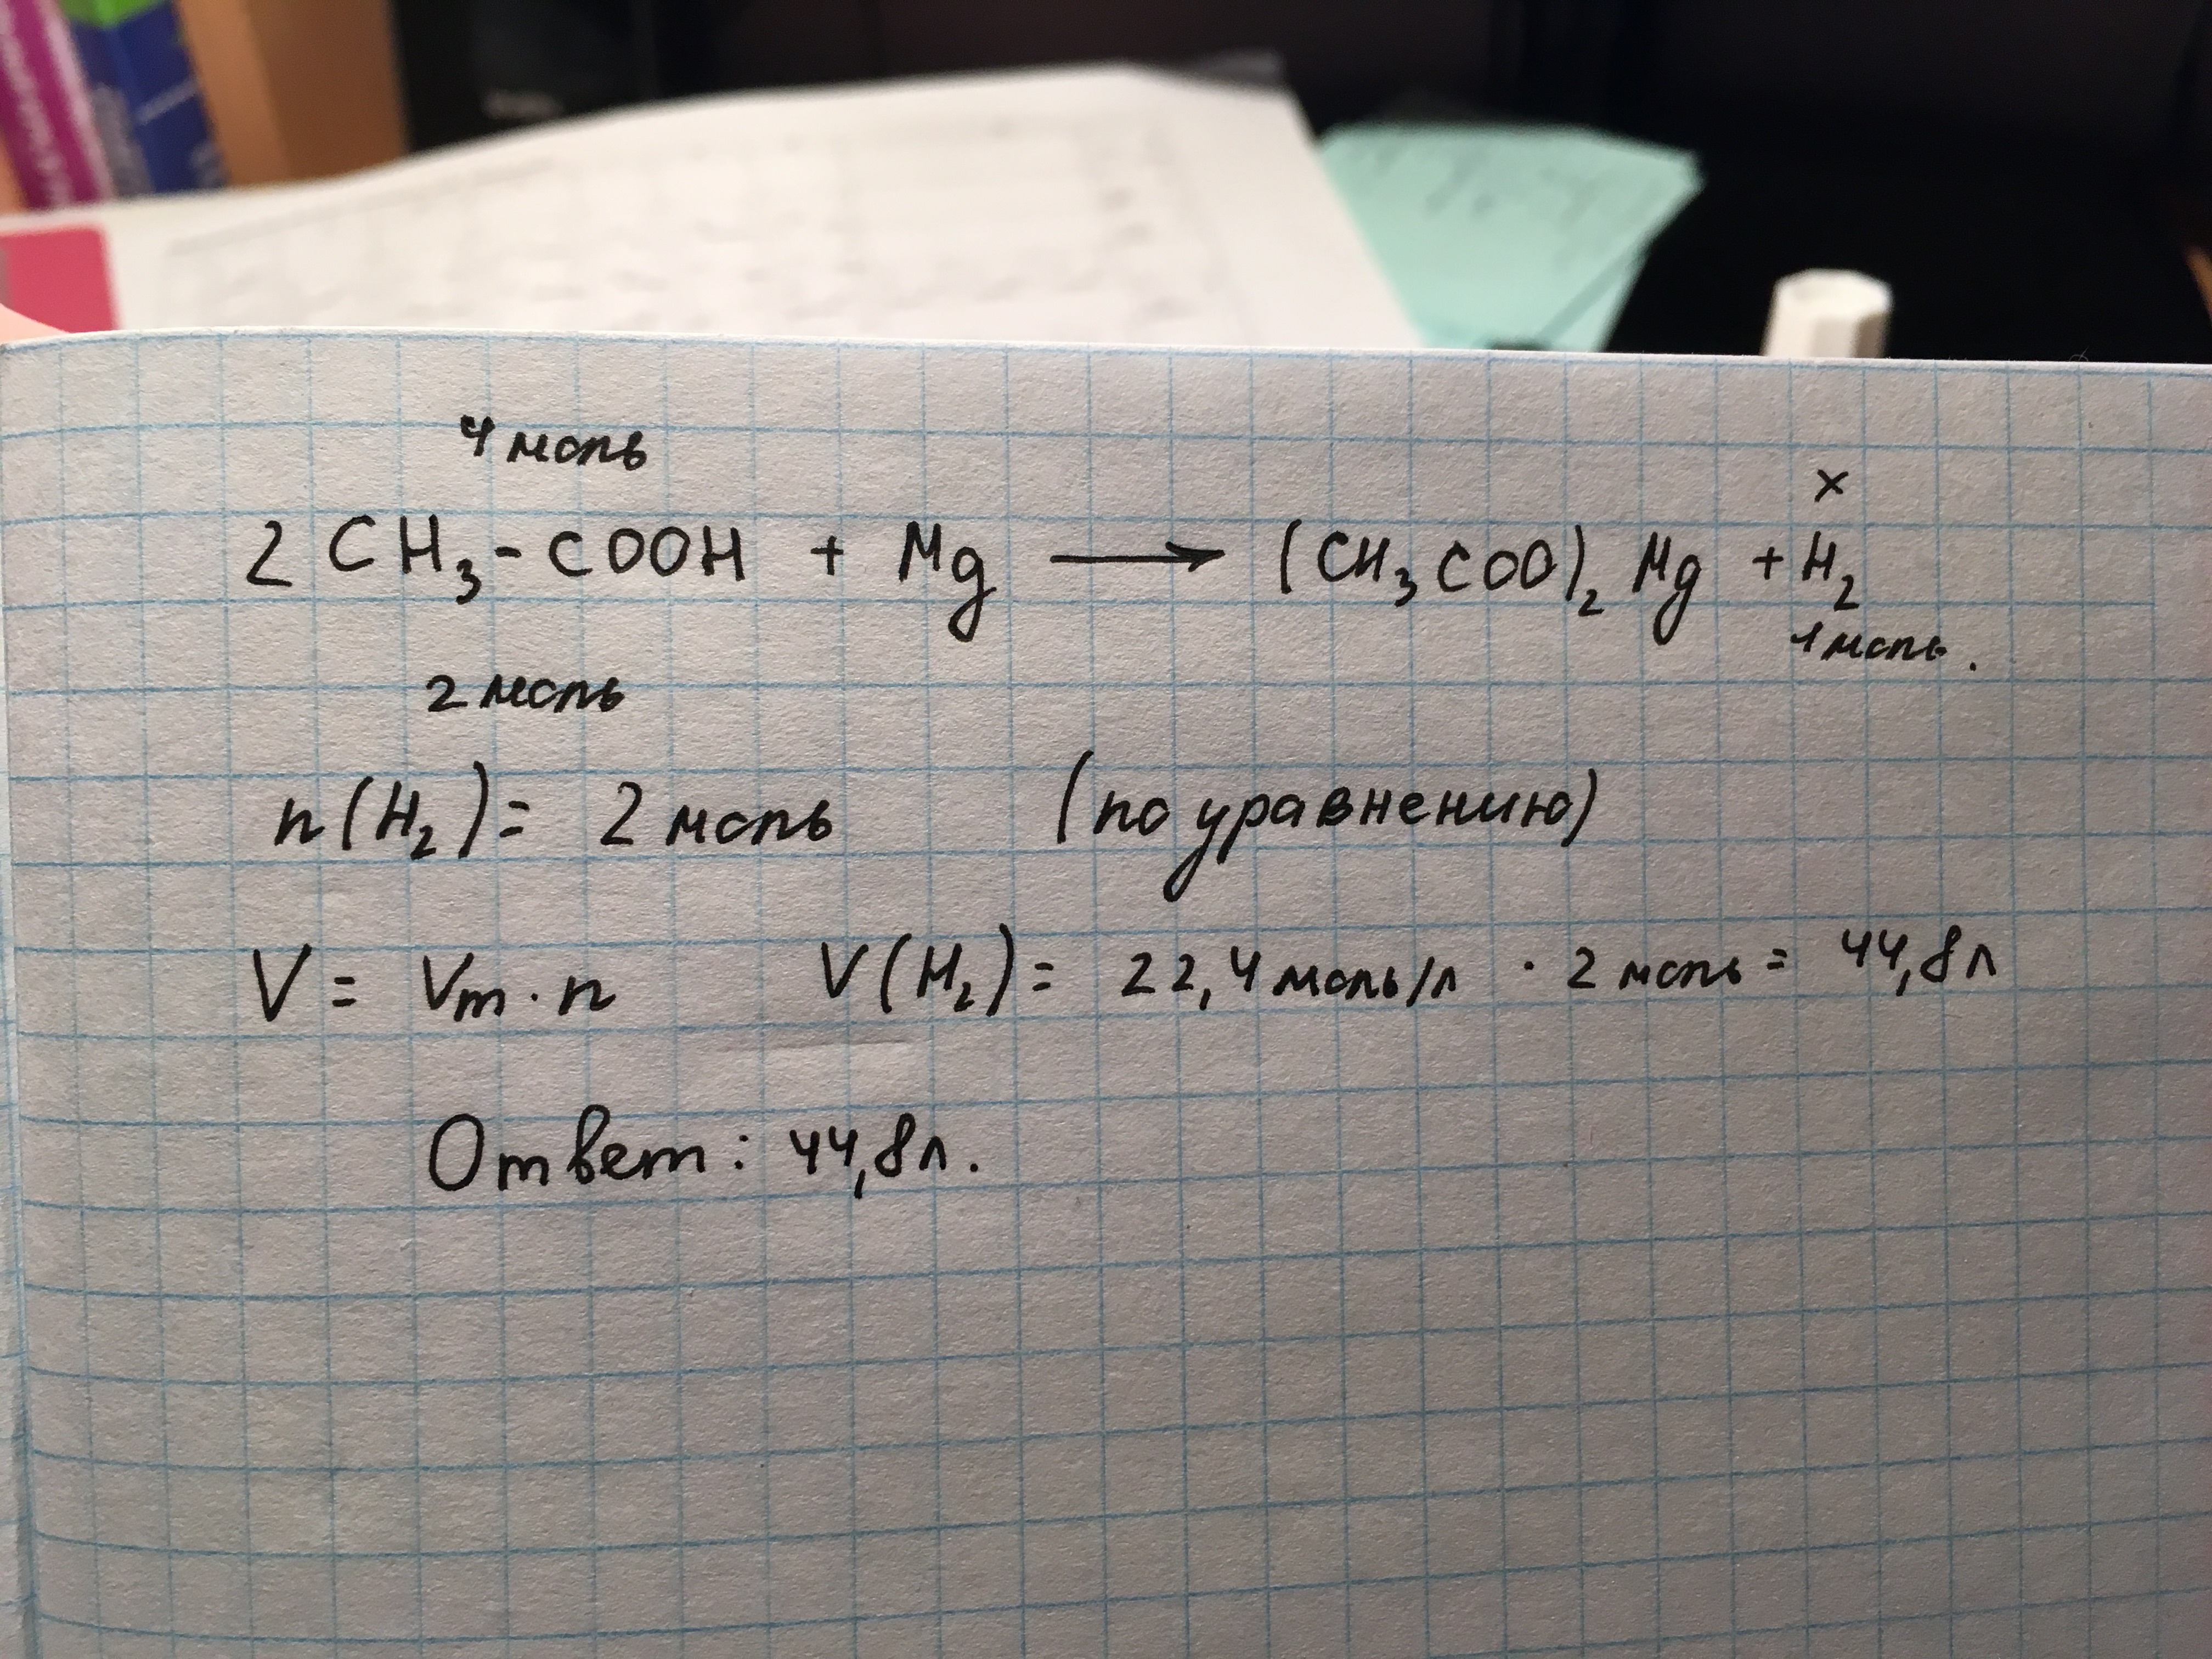 4 моль
x
2 CH₃-COOH + Mg ⟶ (CH₃COO)₂ Mg + H₂
1 моль.
2 моль
n(H₂) = 2 моль (по уравнению)
V = Vm · n V(H₂) = 22,4 моль/л · 2 моль = 44,8л
Ответ: 44,8л.